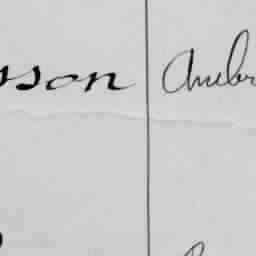 sson Ambr